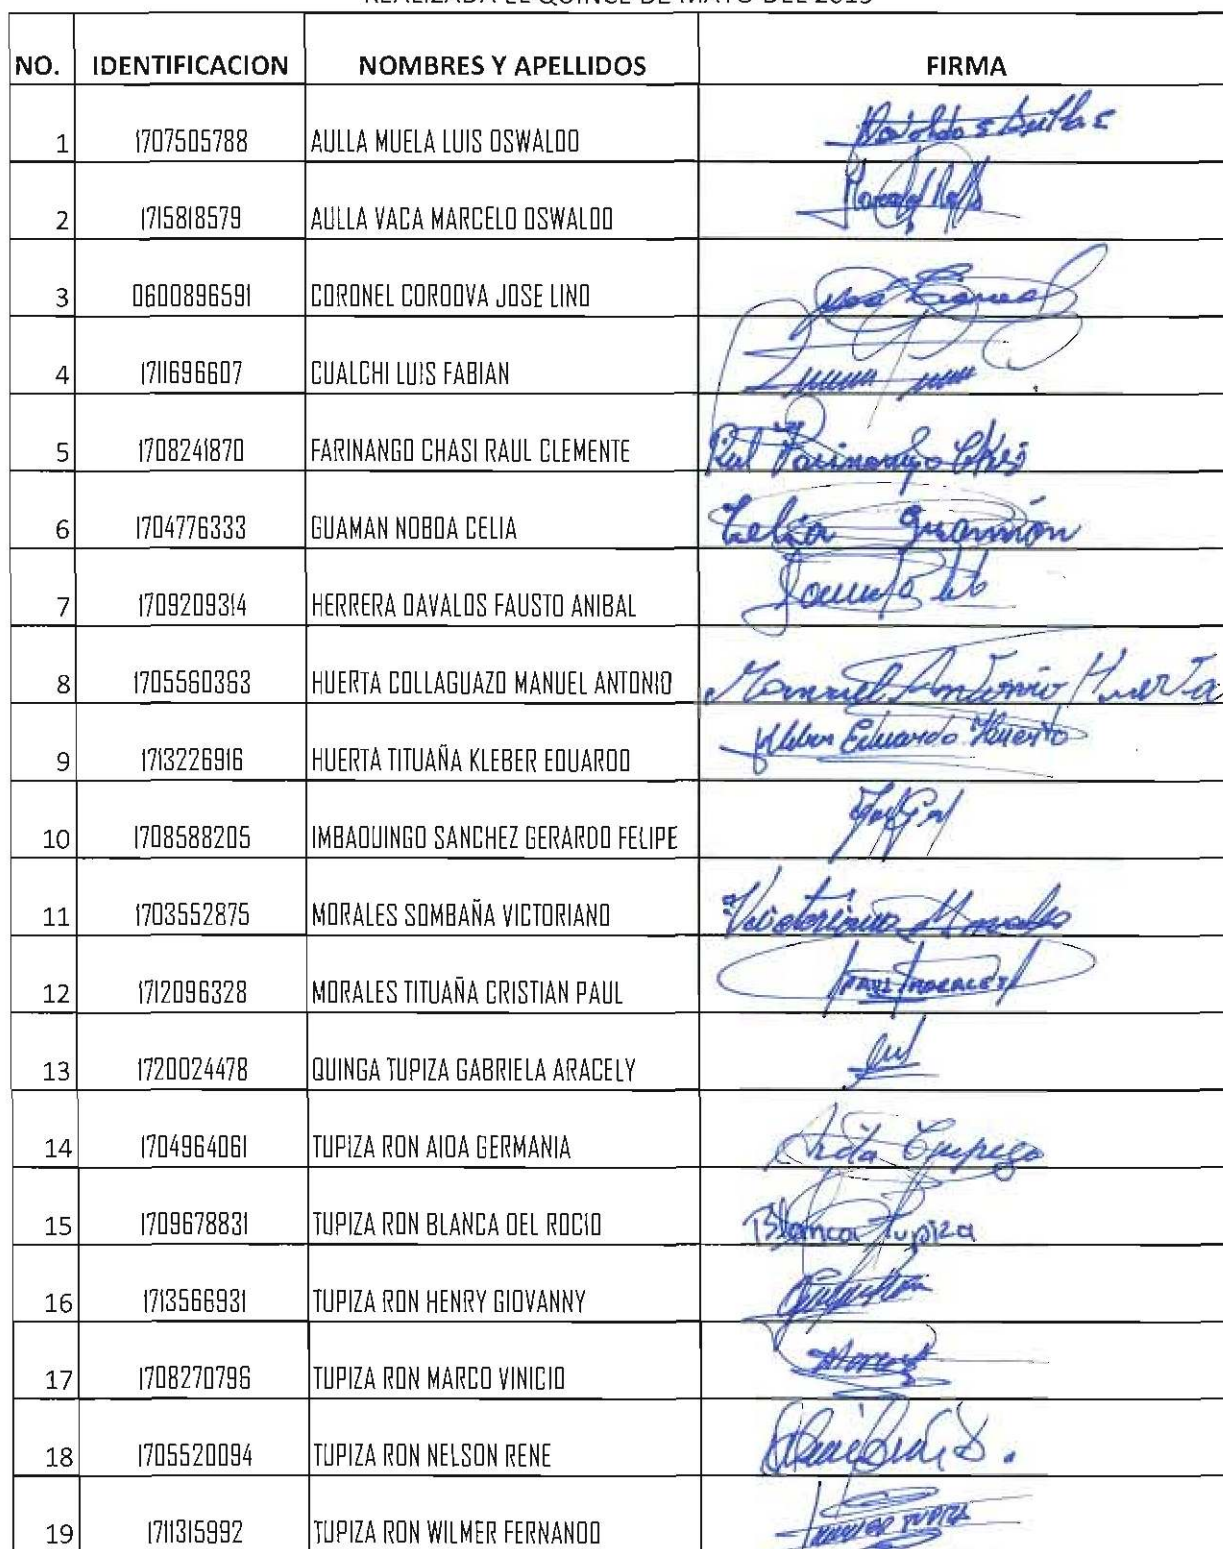 REALIZADA EL QUINCE DE MAYO DEL 2015
NO. IDENTIFICACION NOMBRES Y APELLIDOS FIRMA
1 1707505788 AULLA MUELA LUIS OSWALDO
2 1715818579 AULLA VACA MARCELO OSWALDO
3 0600896591 CORONEL CORDOVA JOSE LINO José Coronel
4 1711696607 CUALCHI LUIS FABIAN
5 1708241870 FARINANGO CHASI RAUL CLEMENTE Farinango
6 1704776333 GUAMAN NOBOA CELIA Celia Guamán
7 1709209314 HERRERA DAVALOS FAUSTO ANIBAL
8 1705560363 HUERTA COLLAGUAZO MANUEL ANTONIO Manuel Antonio Huerta
9 1713226916 HUERTA TITUAÑA KLEBER EDUARDO Kleber Eduardo Huerta
10 1708588205 IMBAQUINGO SANCHEZ GERARDO FELIPE
11 1703552875 MORALES SOMBAÑA VICTORIANO Victoriano Morales
12 1712096328 MORALES TITUAÑA CRISTIAN PAUL PAUL MORALES
13 1720024478 QUINGA TUPIZA GABRIELA ARACELY
14 1704964061 TUPIZA RON AIDA GERMANIA Aida Tupiza
15 1709678831 TUPIZA RON BLANCA DEL ROCIO Blanca Tupiza
16 1713566931 TUPIZA RON HENRY GIOVANNY
17 1708270796 TUPIZA RON MARCO VINICIO
18 1705520094 TUPIZA RON NELSON RENE
19 1711315992 TUPIZA RON WILMER FERNANDO